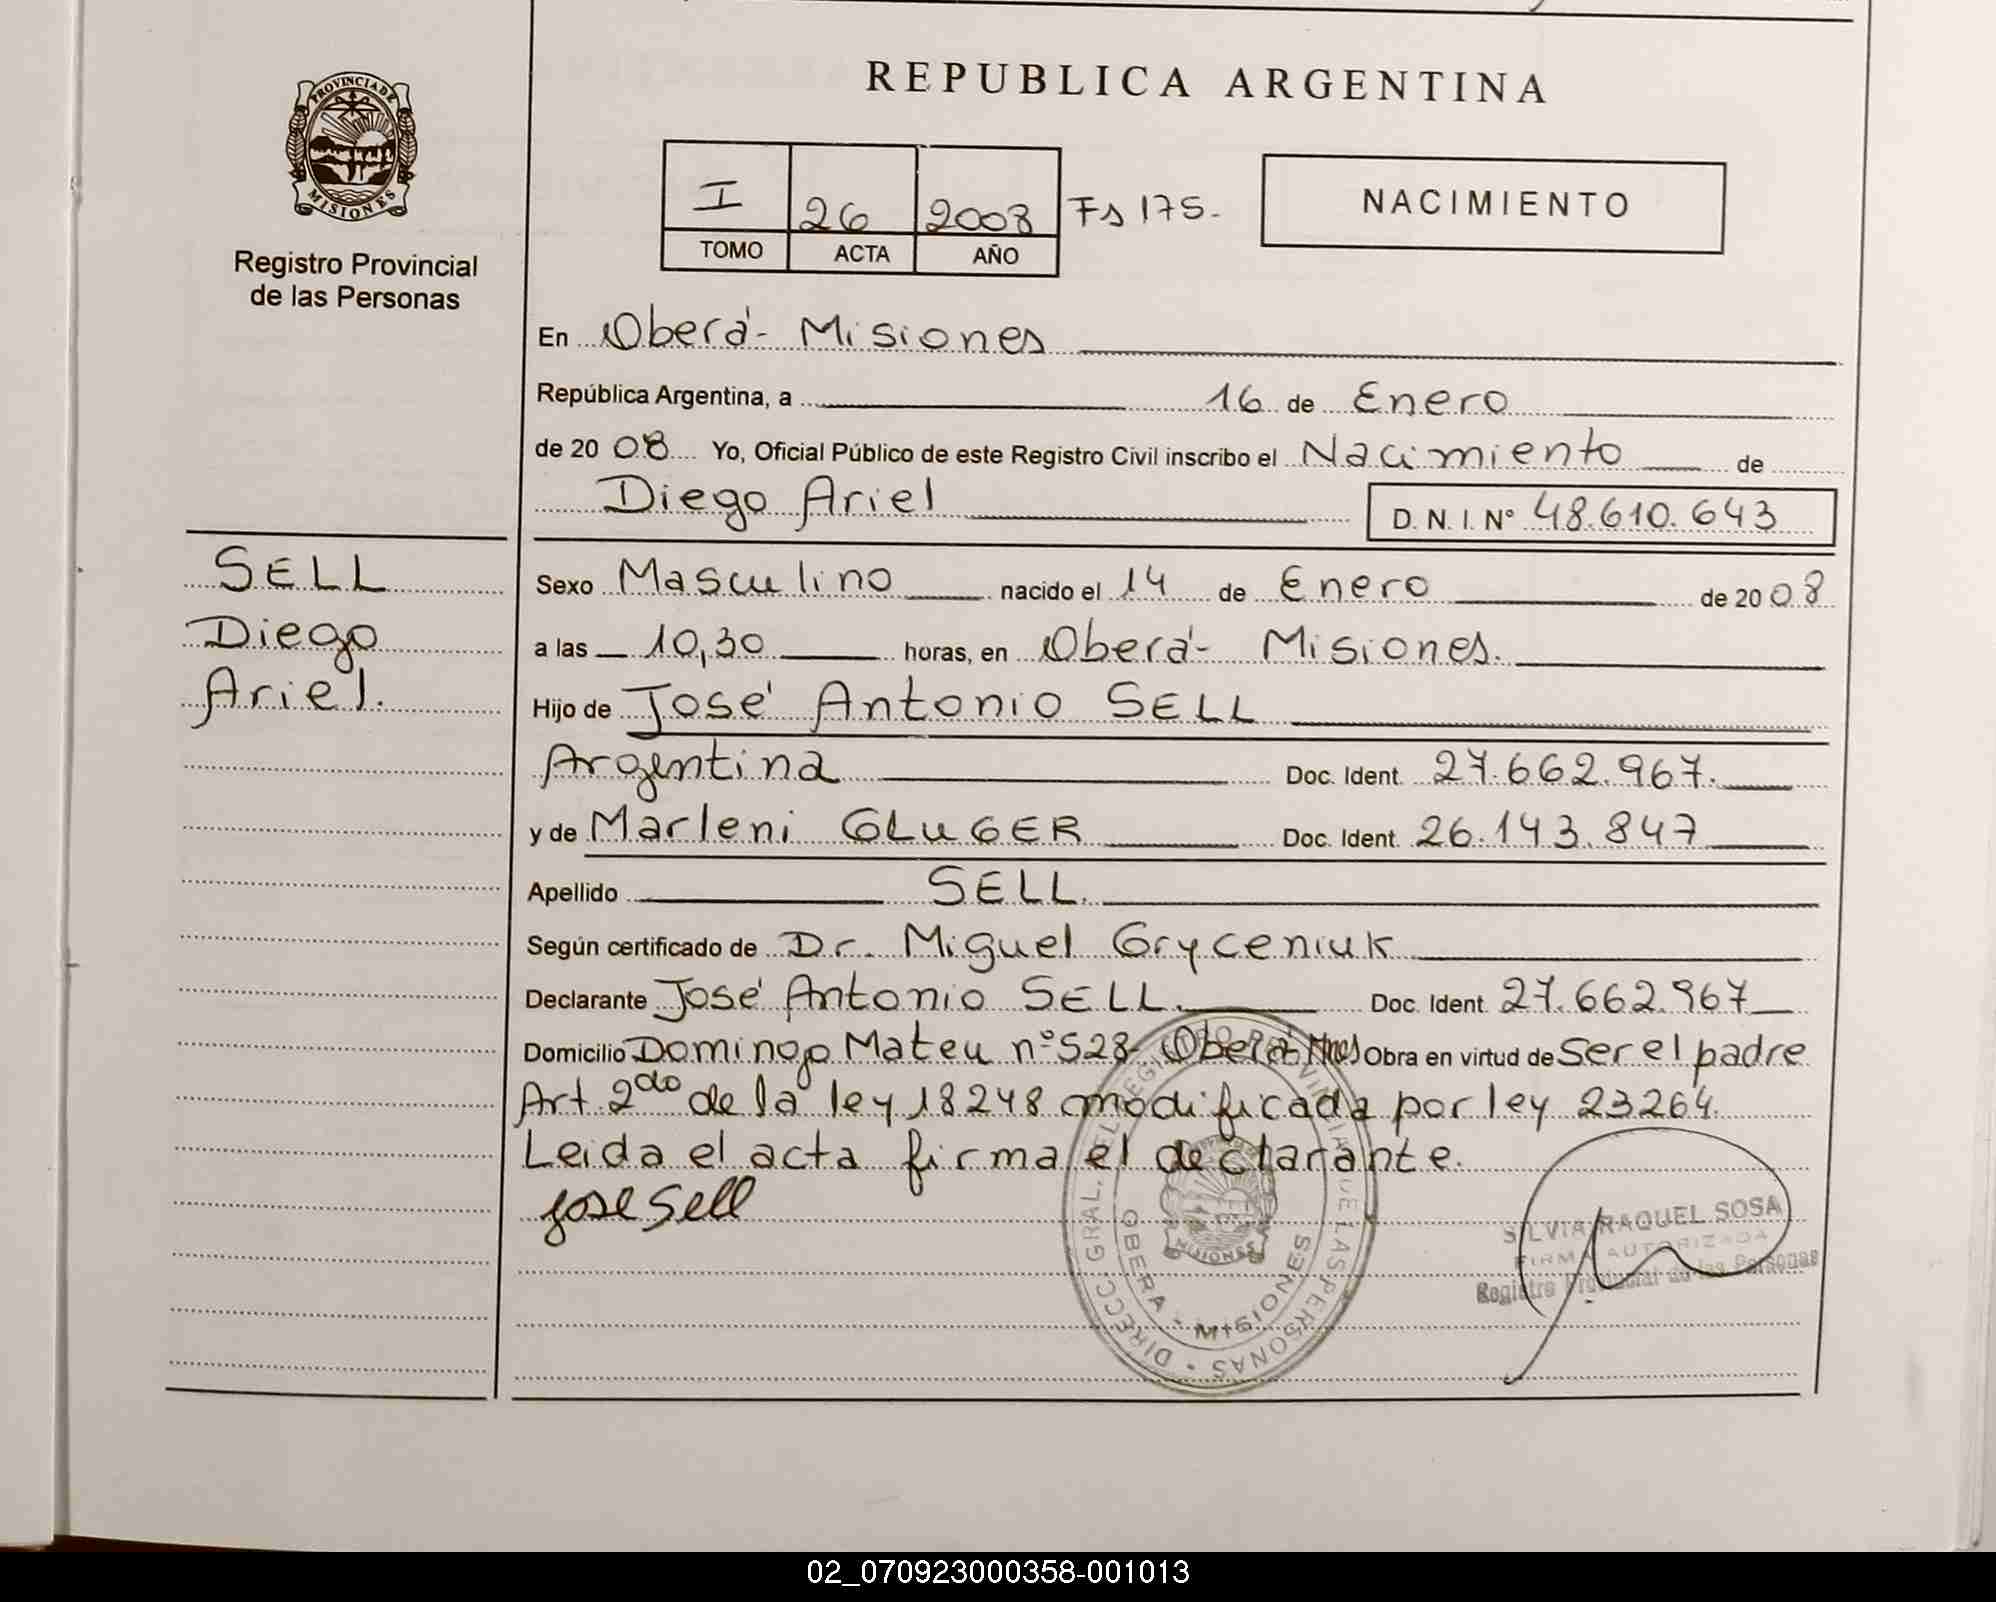 REPUBLICA ARGENTINA
PROVINCIA DE
MISIONES
Registro Provincial
de las Personas
I 26 2008 Fs 175.
TOMO ACTA AÑO
NACIMIENTO
En Oberá - Misiones
República Argentina, a 16 de Enero
de 20 08 Yo, Oficial Público de este Registro Civil inscribo el Nacimiento de
Diego Ariel D. N. I. Nº 48.610.643
SELL
Diego
Ariel.
Sexo Masculino nacido el 14 de Enero de 20 08
a las 10,30 horas, en Oberá - Misiones.
Hijo de José Antonio SELL
Argentina Doc. Ident. 27.662.967.
y de Marleni GLUGER Doc. Ident. 26.143.847
Apellido SELL.
Según certificado de Dr. Miguel Gryceniuk
Declarante José Antonio SELL. Doc. Ident. 27.662.967
Domicilio Domingo Mateu nº 528- Oberá Mnes Obra en virtud de Ser el padre
Art. 2do de la ley 18248 modificada por ley 23264.
Leida el acta firma el declarante.
Jose Sell
DIRECC. GRAL. DEL REGISTRO PROVINCIAL DE LAS PERSONAS
OBERA - MISIONES
MISIONES
SILVIA RAQUEL SOSA
FIRMA AUTORIZADA
Registro Provincial de las Personas
02_070923000358-001013